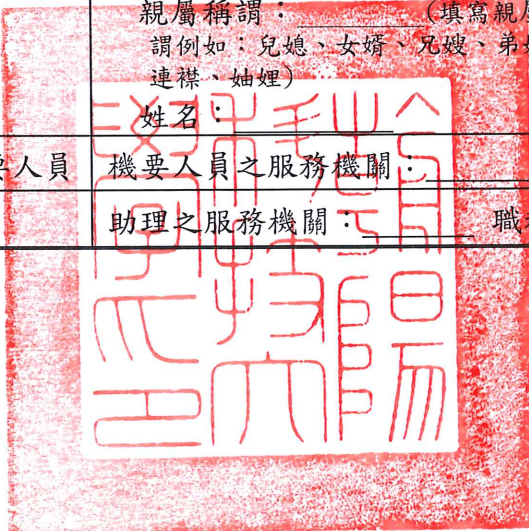 親屬稱謂：________（填寫親屬
謂例如：兒媳、女婿、兄嫂、弟
連襟、妯娌）
姓名：________
要人員 機要人員之服務機關：____
助理之服務機關：________ 職
科技大
學印